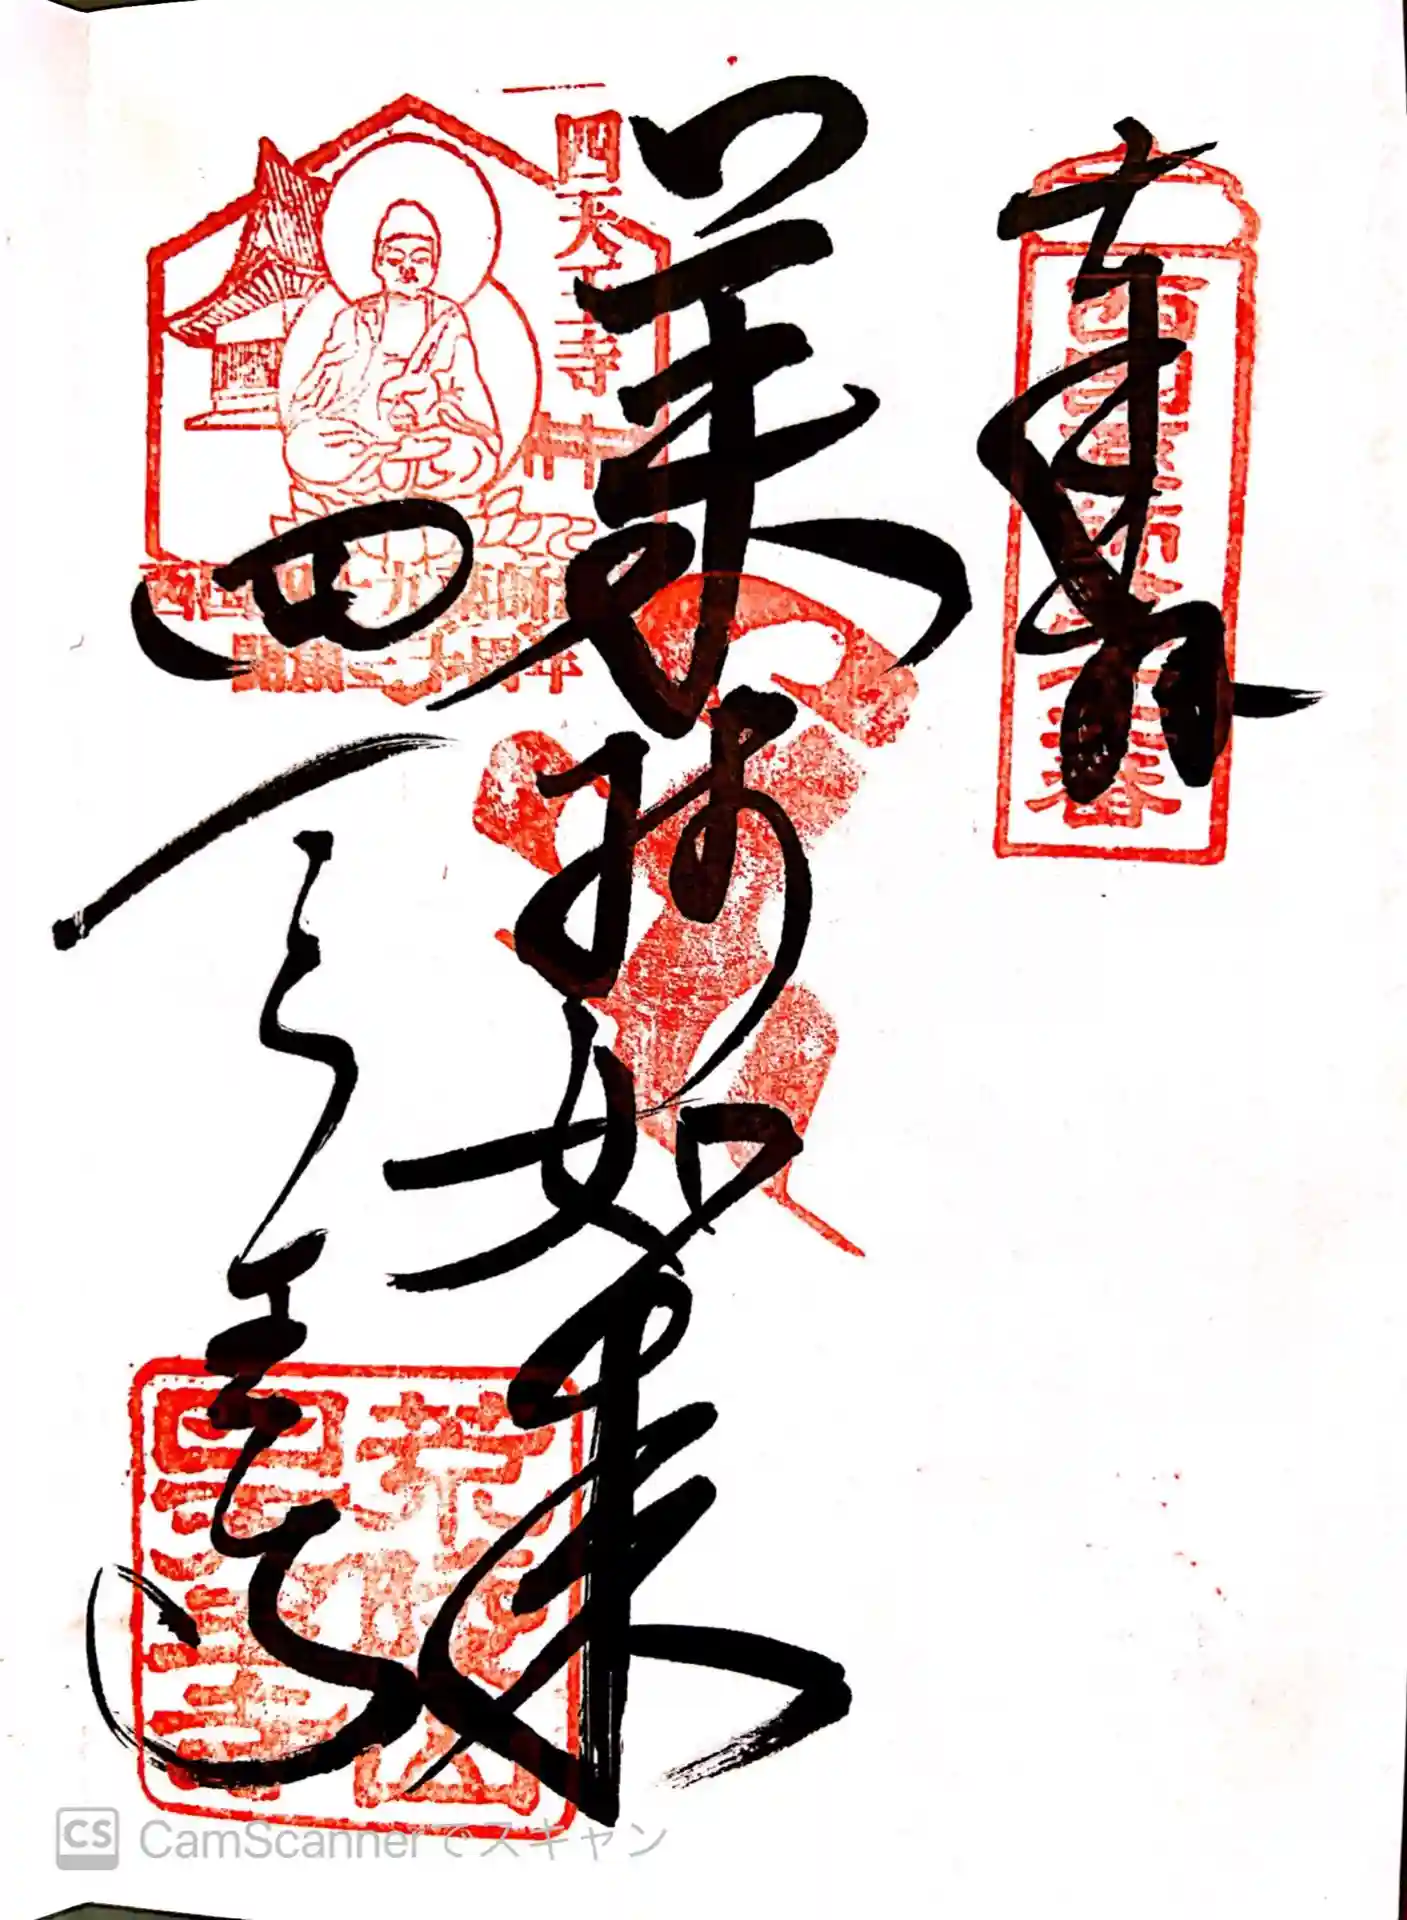 奉拝
西国薬師第十六番
薬師如来
四天王寺
四天王寺
西国四十九薬師
開創三十周年
荒陵山
四天王寺
CS CamScannerでスキャン